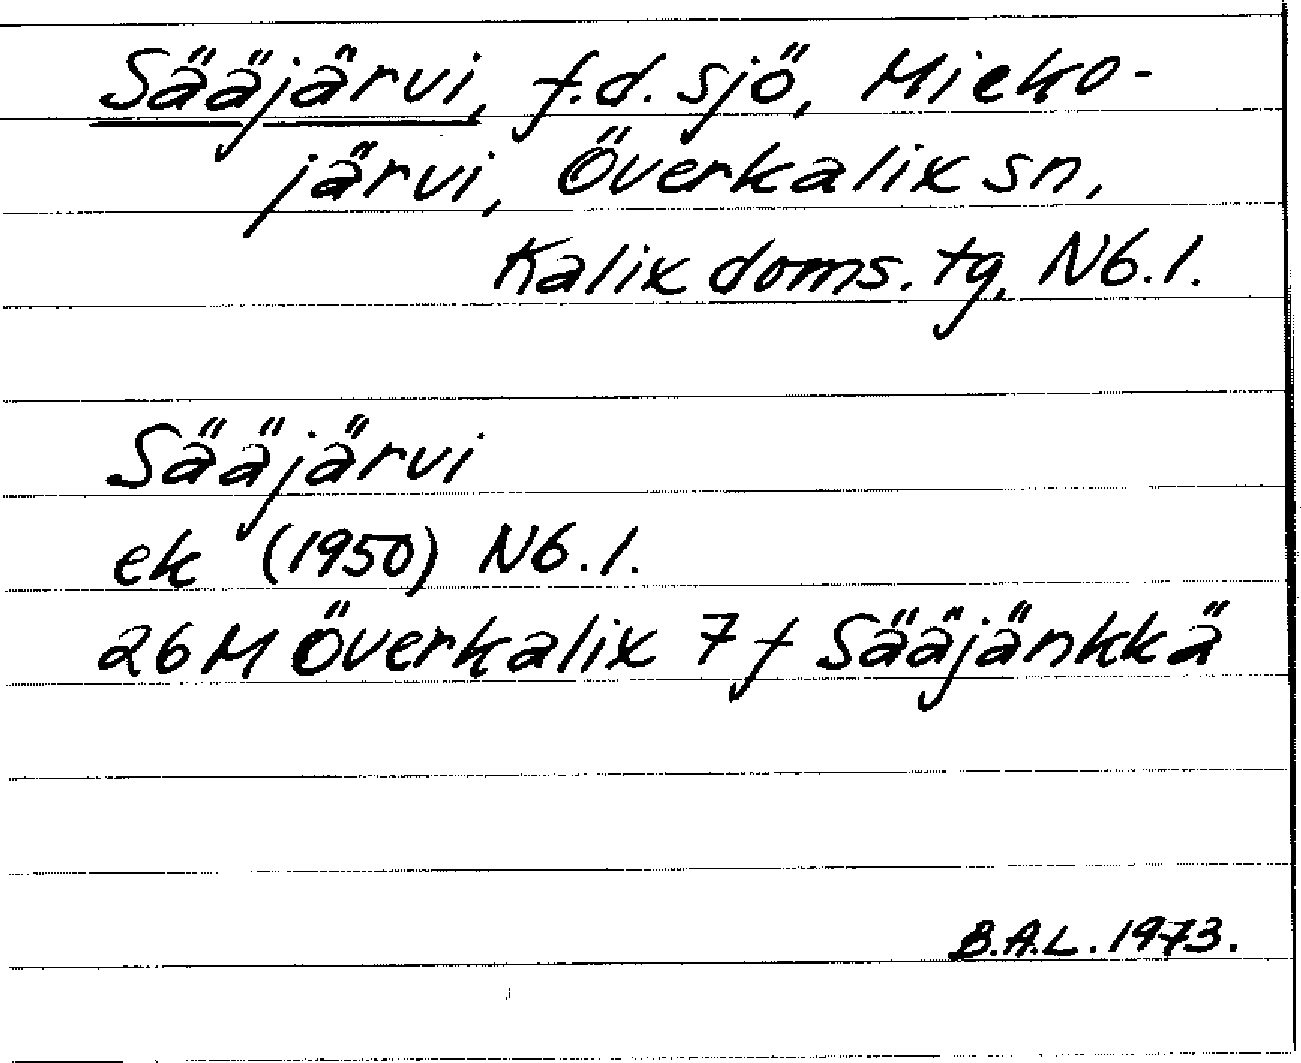 Sääjärvi, f.d. sjö, Mieko-
järvi, Överkalix sn,
Kalix doms. tg, Nb. l.
Sääjärvi
ek (1950) Nb. l.
26 M Överkalix 7 f Sääjänkkä
B.A.L. 1973.